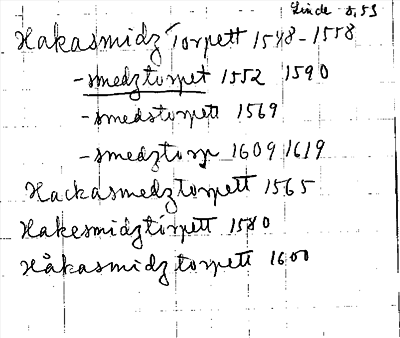 Linde s, 53
Hakasmidz Torpett 1548-1558
-smedztorpet 1552 1590
-smedstorpett 1569
-smedztorp 1609 1619
Hackasmedztorpett 1565
Hakesmidztorpett 1580
Håkasmidztorpett 1600